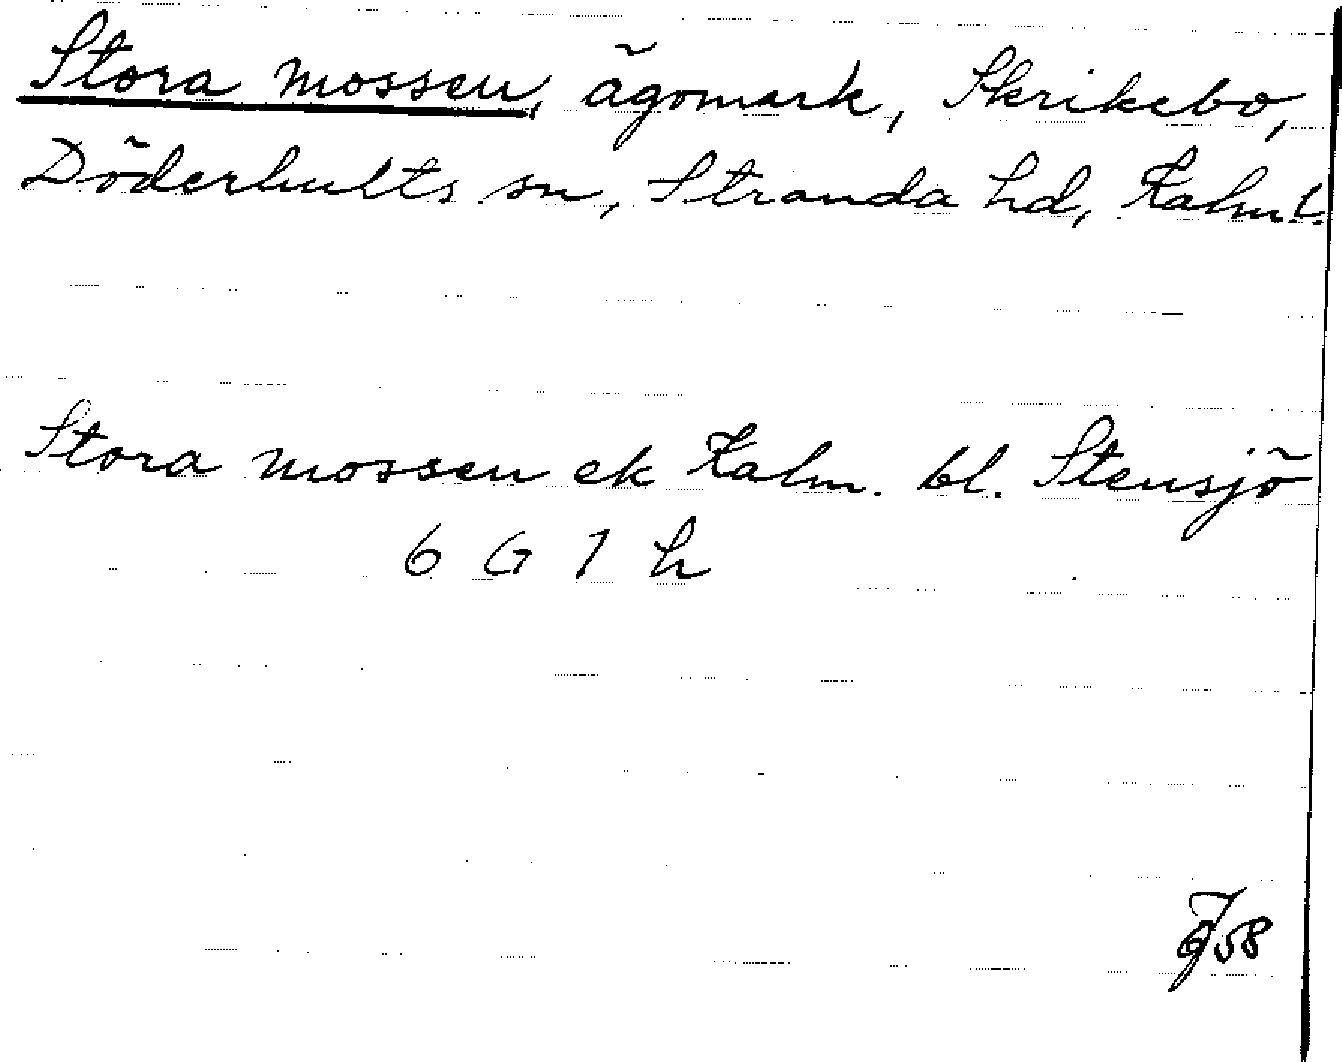 Stora mossen, ägomark, Skrikebo,
Döderhults sn, Stranda hd, Kalm.l.
Stora mossen ek Kalm. bl. Stensjö
6 G 7 h
58